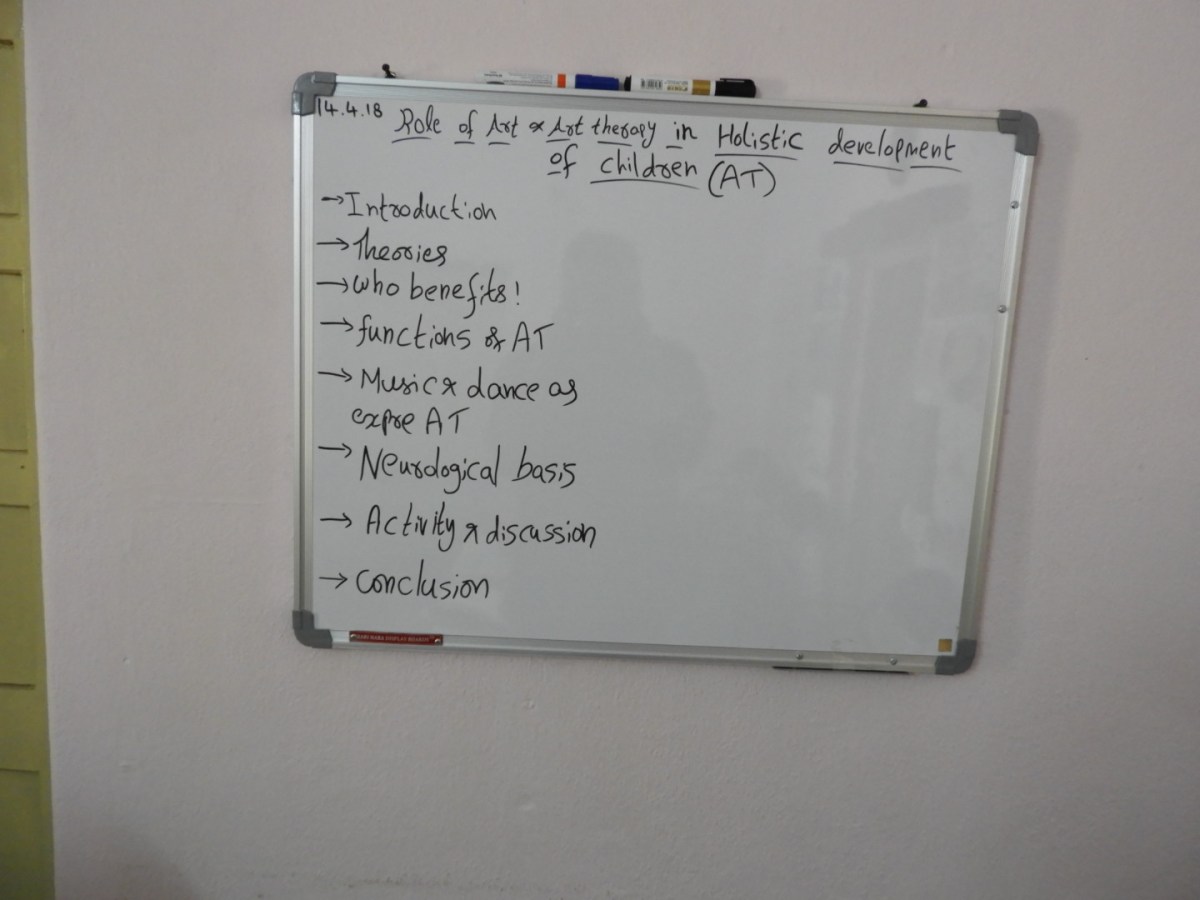 14.4.18 Role of Art & Art therapy in Holistic development
of children (AT)
→ Introduction
→ Theories
→ who benefits!
→ functions of AT
→ Music & dance as
expre AT
→ Neurological basis
→ Activity & discussion
→ Conclusion